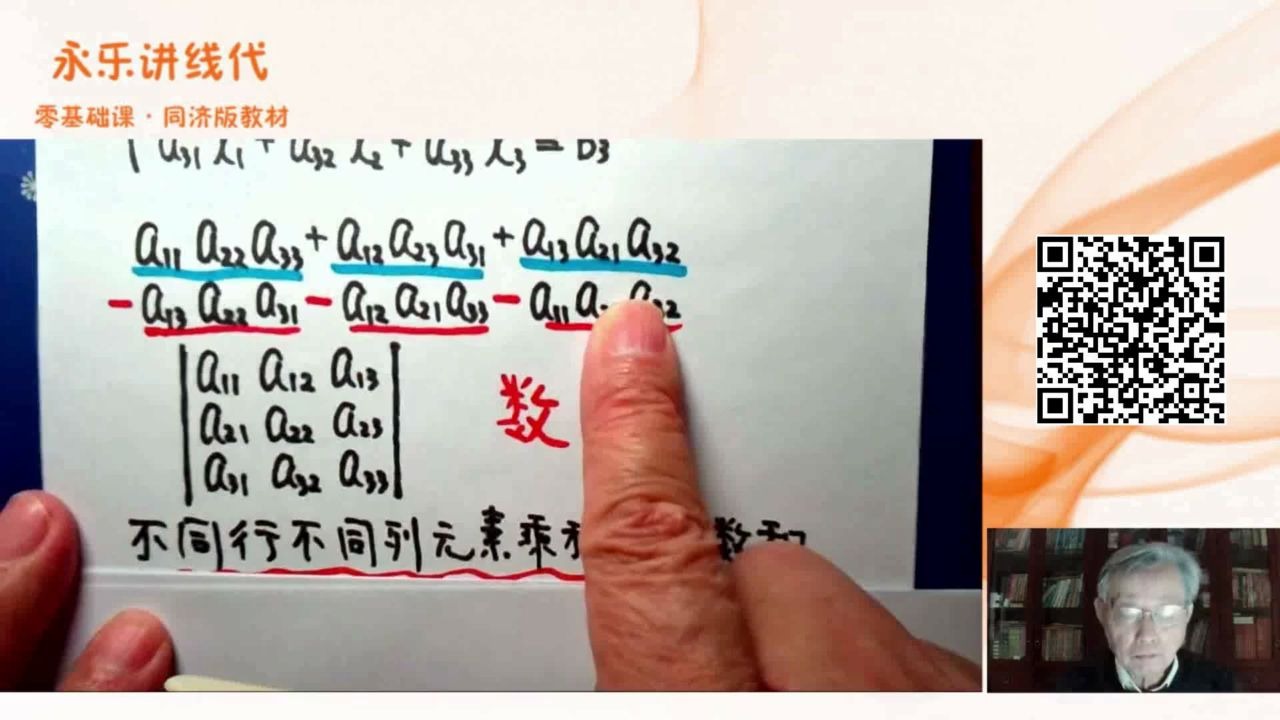 永乐讲线代
零基础课·同济版教材
a₃₁ x₁ + a₃₂ x₂ + a₃₃ x₃ = b₃
a₁₁ a₂₂ a₃₃ + a₁₂ a₂₃ a₃₁ + a₁₃ a₂₁ a₃₂
- a₁₃ a₂₂ a₃₁ - a₁₂ a₂₁ a₃₃ - a₁₁ a
a₁₁ a₁₂ a₁₃
a₂₁ a₂₂ a₂₃
a₃₁ a₃₂ a₃₃
数
不同行不同列元素乘 数和